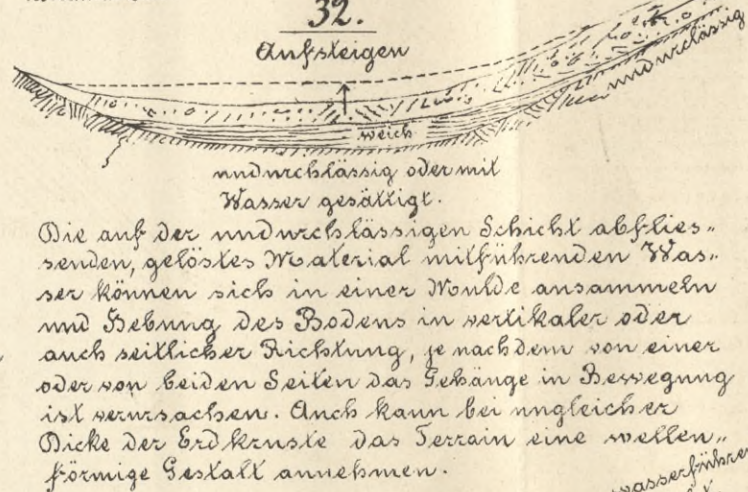 32.
Aufsteigen
undurchlässig
weich
undurchlässig oder mit
Wasser gesättigt.
Die auf der undurchlässigen Schicht abflies„
senden, gelöstes Material mitführenden Was„
ser können sich in einer Mulde ansammeln
und Hebung des Bodens in vertikaler oder
auch seitlicher Richtung, je nachdem von einer
oder von beiden Seiten das Gehänge in Bewegung
ist verursachen. Auch kann bei ungleicher
Dicke der Erdkruste das Terrain eine wellen„
förmige Gestalt annehmen.